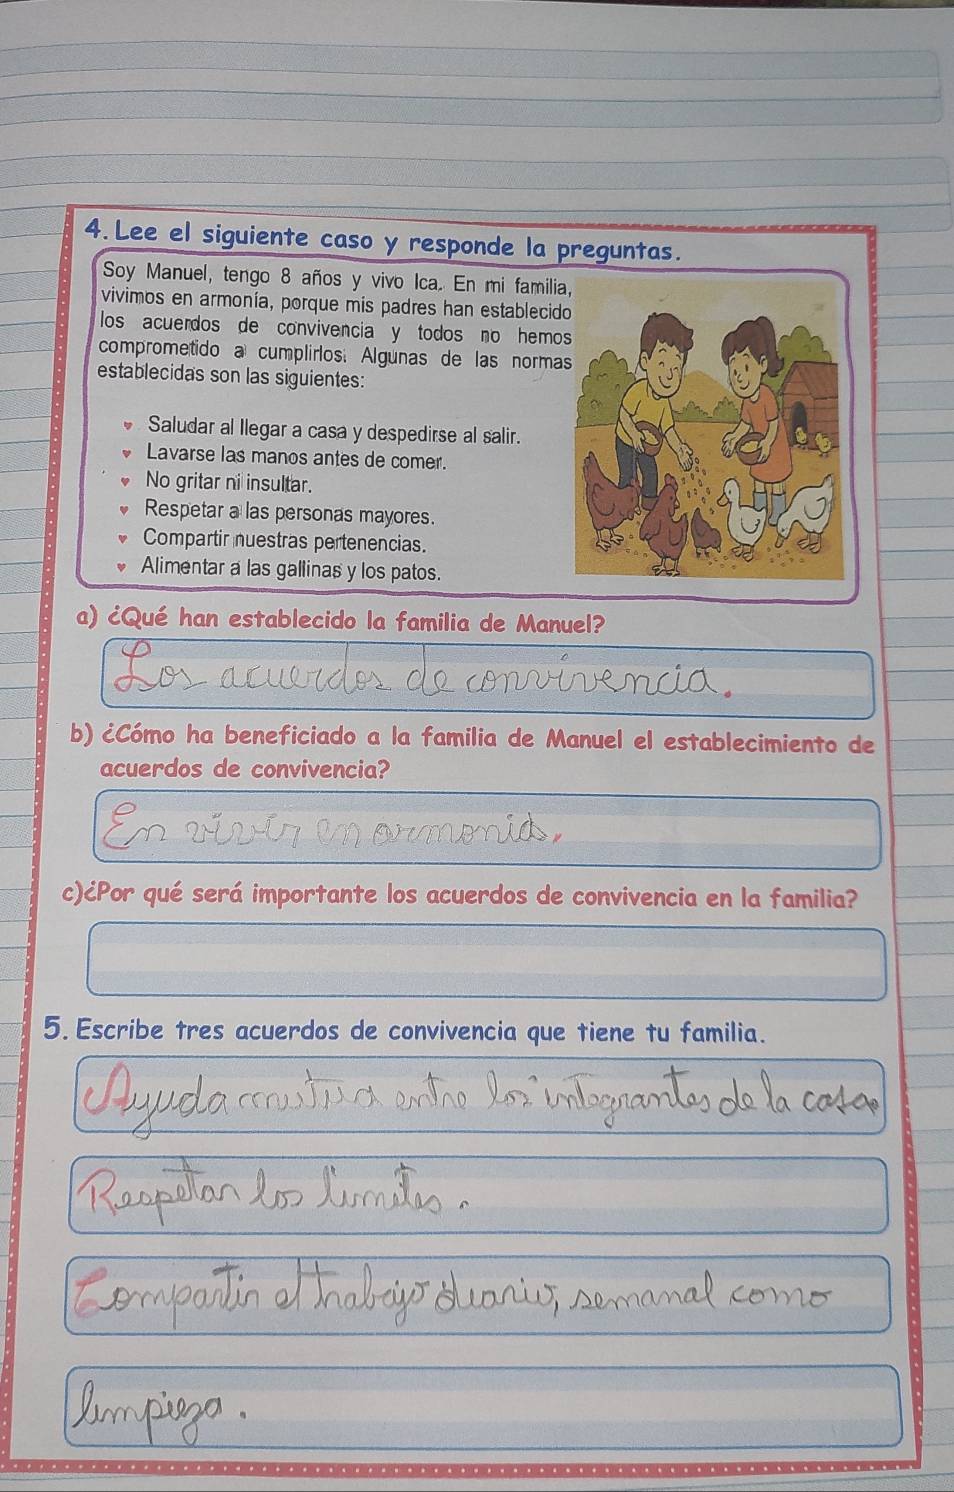 4. Lee el siguiente caso y responde la preguntas.
Soy Manuel, tengo 8 años y vivo Ica. En mi familia,
vivimos en armonía, porque mis padres han establecido
los acuerdos de convivencia y todos no hemos
comprometido a cumplirlos. Algunas de las normas
establecidas son las siguientes:
♥ Saludar al llegar a casa y despedirse al salir.
♥ Lavarse las manos antes de comer.
♥ No gritar ni insultar.
♥ Respetar a las personas mayores.
♥ Compartir nuestras pertenencias.
♥ Alimentar a las gallinas y los patos.
a) ¿Qué han establecido la familia de Manuel?
Los acuerdos de convivencia.
b) ¿Cómo ha beneficiado a la familia de Manuel el establecimiento de
acuerdos de convivencia?
En vivir en armonia.
c)¿Por qué será importante los acuerdos de convivencia en la familia?
5. Escribe tres acuerdos de convivencia que tiene tu familia.
Ayuda entre los integrantes de la casa
Respetar los limites.
Compartir el trabajo diario, semanal como
limpieza.